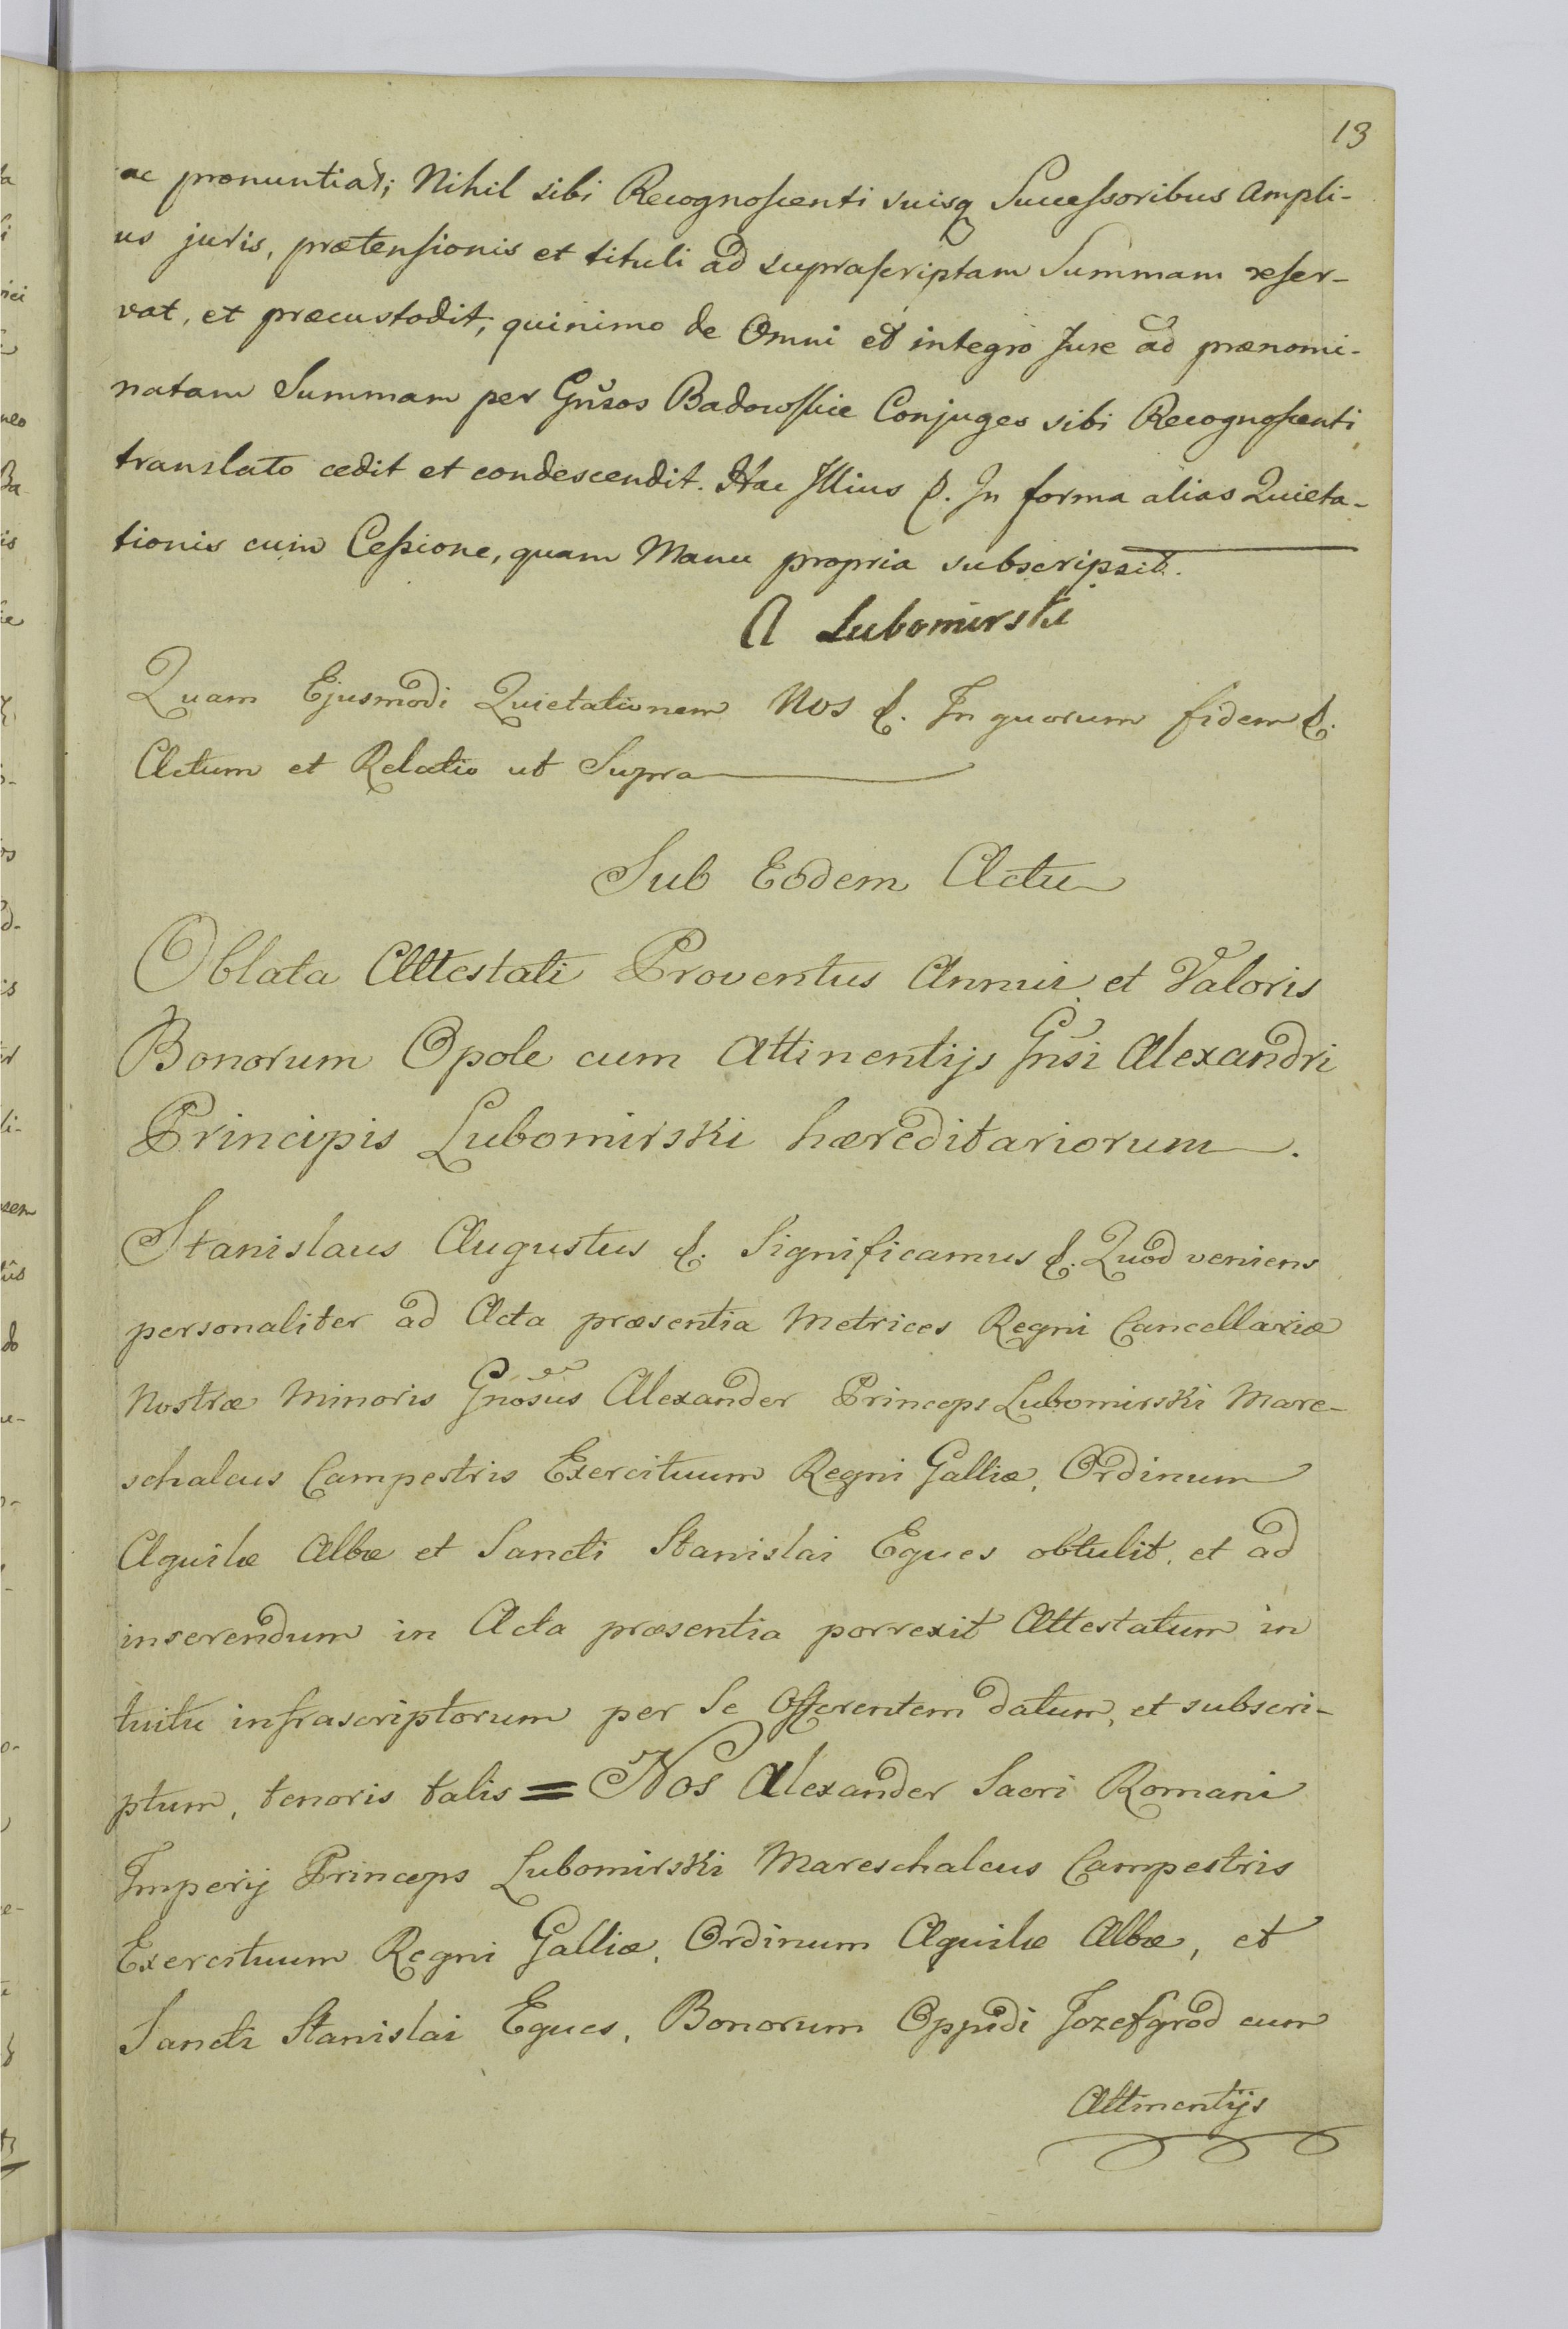 13
ac pronuntiat; Nihil sibi Recognoscenti suisq Successoribus Ampli-
us juris, prætensionis et tituli ad suprascriptam Summam reser-
vat, et præcustodit, quinimo de Omni et integro Jure ad prænomi-
natam Summam per Gnsos Badowskie Conjuges sibi Recognoscenti
translato cedit et condescendit. Hac Illius &. In forma alias Quieta-
tionis cum Cessione, quam Manu propria subscripsit.
A Lubomirski
Quam Ejusmodi Quietationem Nos &. In quorum fidem &.
Actum et Relatio ut Supra
Sub Eodem Actu
Oblata Attestati Proventus Annui et Valoris
Bonorum Opole cum Attinentijs Gnsi Alexandri
Principis Lubomirski hæreditariorum.
Stanislaus Augustus &. Significamus &. Quod veniens
personaliter ad Acta præsentia Metrices Regni Cancellariæ
Nostræ Minoris Gnosus Alexander Princeps Lubomirski Mare-
schalcus Campestris Exercituum Regni Galliæ, Ordinum
Aquilæ Albæ et Sancti Stanislai Eques obtulit, et ad
inserendum in Acta præsentia porrexit Attestatum in
tuitu infrascriptorum per Se Offerentem datum, et subscri-
ptum, tenoris talis = Nos Alexander Sacri Romani
Imperij Princeps Lubomirski Mareschalcus Campestris
Exercituum Regni Galliæ, Ordinum Aquilæ Albæ, et
Sancti Stanislai Eques, Bonorum Oppidi Jozefgrod cum
Attinentijs